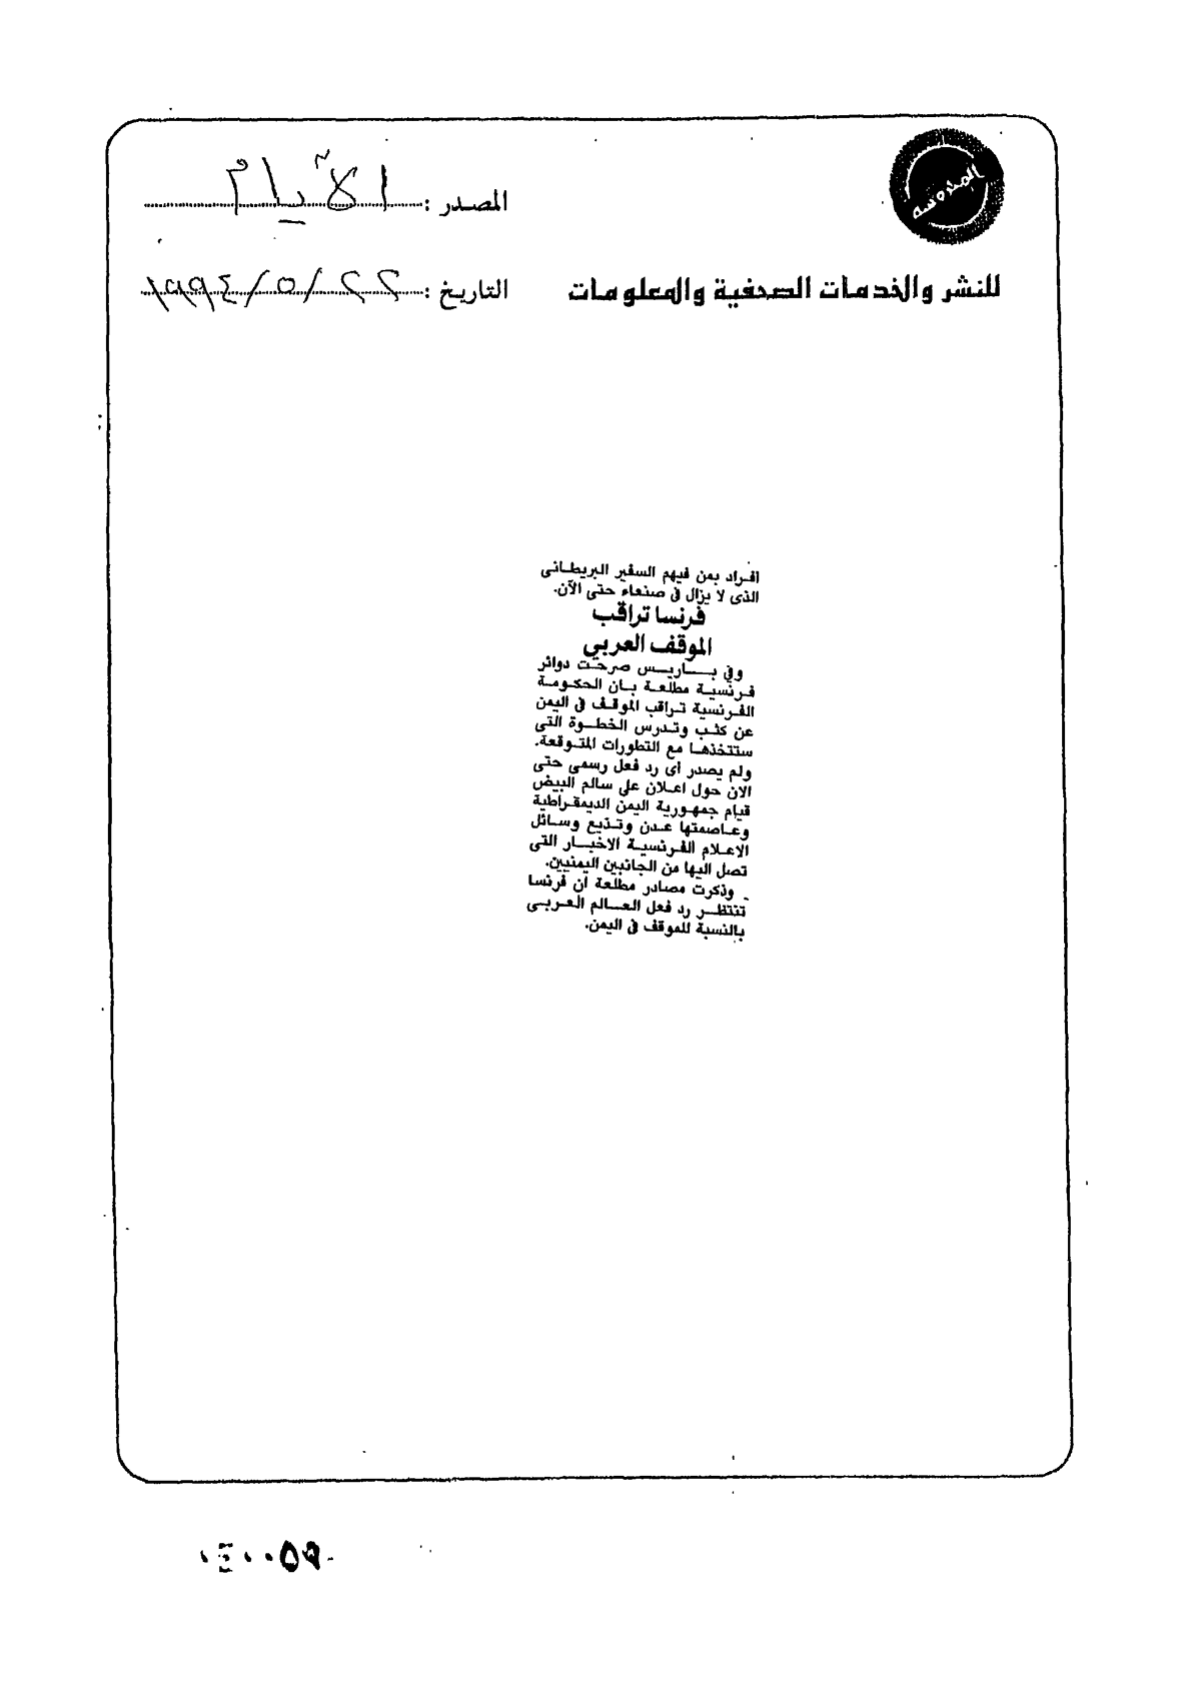 المحروسة
المصدر : الأيام
للنشر والخدمات الصحفية والمعلومات
التاريخ : ٢٢/٥/١٩٩٤
افراد بمن فيهم السفير البريطانى
الذى لا يزال فى صنعاء حتى الآن.
فرنسا تراقب
الموقف العربي
وفى بــاريــس صرحت دوائر
فرنسية مطلعة بان الحكومة
الفرنسية تراقب الموقف فى اليمن
عن كثب وتدرس الخطوة التى
ستتخذها مع التطورات المتوقعة.
ولم يصدر أى رد فعل رسمى حتى
الان حول اعلان على سالم البيض
قيام جمهورية اليمن الديمقراطية
وعاصمتها عدن وتذيع وسائل
الاعلام الفرنسية الاخبار التى
تصل اليها من الجانبين اليمنيين.
وذكرت مصادر مطلعة ان فرنسا
تنتظر رد فعل العالم العربى
بالنسبة للموقف فى اليمن.
٠٤٠٠٥٩